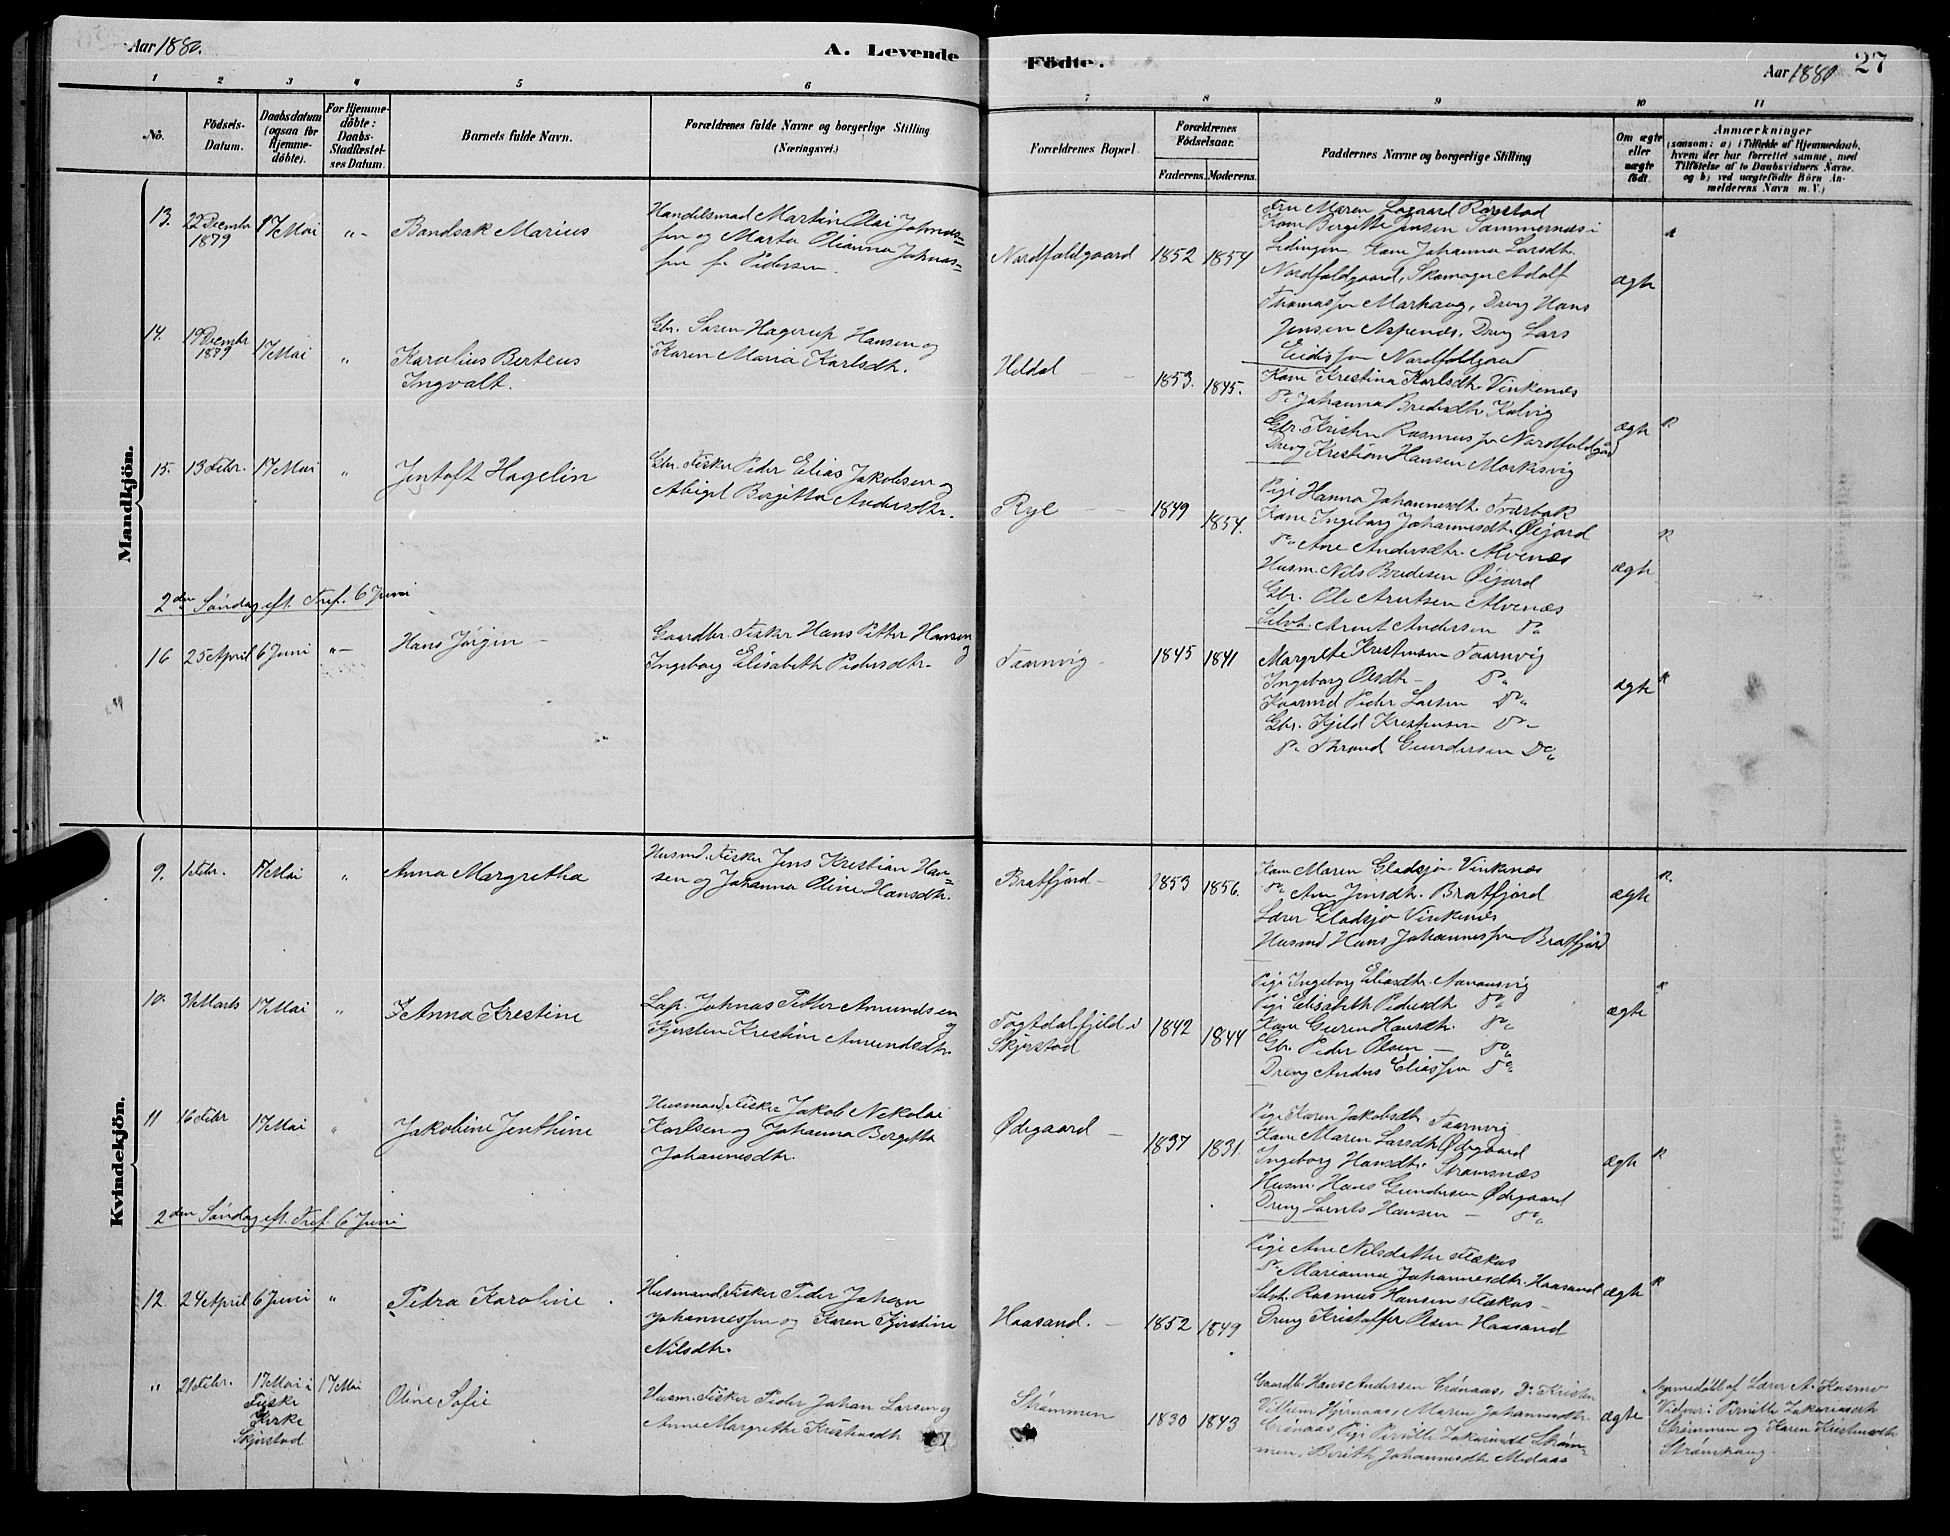 Aar 1880.
A. Levende
Födte.
Aar 1880
27
1 2 3 4 5 6
7 8 9 10 11
No.
Födsels-
Datum.
Daabsdatum
(ogsaa for
Hjemme-
döbte).
For Hjemme-
döbte:
Daabs-
Stadfæstel-
ses Datum.
Barnets fulde Navn.
Forældrenes fulde Navne og borgerlige Stilling
(Næringsvei.)
Forældrenes Bopæl.
Forældrenes
Födselsaar.
Faderens. Moderens.
Faddernes Navne og borgerlige Stilling
Om ægte
eller
uægte
født.
Anmærkninger
(saasom: a) i Tilfælde af Hjemmedaab,
hvem der har forrettet samme, med
Tilföielse af to Daabsvidners Navne.
og b) ved uægtefödte Börn An-
melderens Navn m. V.)
Mandkjön.
13.
22 Decembr
1879
17 Mai
"-
Bandsak Marius
Handelsmad Martin Olai Johnas=
sen og Marta Olianna Johnas=
sen f. Pedersen.
Nordfoldgaard
1852 1854
Fru Maren Logaard Rørstad
Kone Bergitte Jensen Sommernæs i
Lødingen Kone Johanna Larsdtr.
Nordfoldgaard, Skomager Adolf
Thomassen Markaug, Dreng Hans
Jensen Aspenæs, Dreng Lars
Eidissen Nordfoldgaard
ægte
14.
19 Decembr
1879
17 Mai
"
Karolius Berteus
Ingvalt.
Gbr. Søren Hagerup Hansen og
Karen Maria Karlsdtr.
Heldal
1853. 1845.
Kone Krestina Karlsdtr. Vinkenæs
Do Johanna Bredesdtr. Kalvig
Gbr. Kristen Rasmussen Nordfoldgård
Dreng Krestian Hansen Morkisvig
ægte
15.
13 Febr.
17 Mai
"
Jentoft Hagelin
Gbr. Fisker Peder Elias Jakobsen og
Abigel Bergitta Andersdtr.
Ryl
1849 1854.
Pige Hanna Johannesdtr. Tværbak
Kone Ingeborg Johannesdtr. Øijord
Do Ane Andersdtr. Alvenæs
Husm. Nils Bredesen Øijord
Gbr. Ole Arntsen Alvenæs
Selvst. Arnt Andersen Do
ægte
2den Søndag eft. Tref. 6 Juni
16
25 April
6 Juni
"-
Hans Jørgin
Gaardbr. Fisker Hans Petter Hansen
og Ingeborg Elisabeth Pedersdtr.
Taarnvig
1845 1841
Margrete Krestensen Taarnvig
Ingeborg Olsdtr. Do
Kaarmd Peder Larsen Do
Gbr. Kjeld Krestensen Do
Do Thrond Gundersen Do
ægte
Kvindekjön.
9.
1 Febr.
17 Mai
"
Anna Margretha
Husmd. Fisker Jens Krestian Han=
sen og Johanna Oline Hansdtr.
Bratfjord
1853 1856.
Kone Maren Gladsjø Vinkenæs
Do Ane Jensdtr. Bratfjord
Lærer Gladsjø Vinkenæs
Husmd Hans Johannessen Bratfjord
ægte
10.
31 Marts
17 Mai
"
Anna Krestine
Lap. Johnas Petter Amundsen
og Kjersten Krestine Amundsdtr.
Fogtdalfjeld i
Skjerstad
1842 1844
Pige Ingeborg Eliasdtr.
Pige Elisabeth Pedersdtr Do
Kone Guren Hansdtr. Do
Gbr. Peder Olsen Do
Dreng Anders Eliassen Do
ægte
11
16 Febr
17 Mai
"
Jakobine Jenthine
Husmand Fisker Jakob Nekolai
Karlsen og Johanna Bergitta
Johannesdtr.
Ødegaard
1837 1831.
Pige Karen Jakobsdtr. Taarnvig
Kone Maren Larsdtr. Ødegaard
Ingeborg Hansdtr. Strømsnæs
Husm. Hans Gundersen Ødegaard
Dreng Lorents Hansen Do
ægte
2den Søndag eft. Tref. 6 Juni
12
24 April
6 Juni
"
Pedra Karoline
Husmand Fisker Peder Johan
Johannessen og Karen Kjerstine
Nilsdtr.
Haasand.
1852 1849
Pige Ane Nilsdatter Flækus
Do Marianna Johannesdtr. Haasand
Selvst. Rasmus Hansen Flækus
Dreng Kristoffer Olsen Haasand
ægte
"
21 Febr.
17 Mai i
Fuske
Kirke
Skjerstad
17 Mai
Oline Sofie
Husm. Fisker Peder Johan Larsen og
Anne Margrethe Kristensdtr
Strømmen
1830 1843
Gaardbr. Hans Andersen Grønaas, Do Kristen
Villum Hjernaas, Maren Johannesdtr.
Grønaas, Pige Pernille Zakariasdt Strøm=
men, Berith Johannesdtr Medaas
ægte
Hjemmedøbt af Lærer A. Kosmo
Vidner: Pernille Zakariasdtr
Strømmen og Karen Kristensdtr
Strømhaug